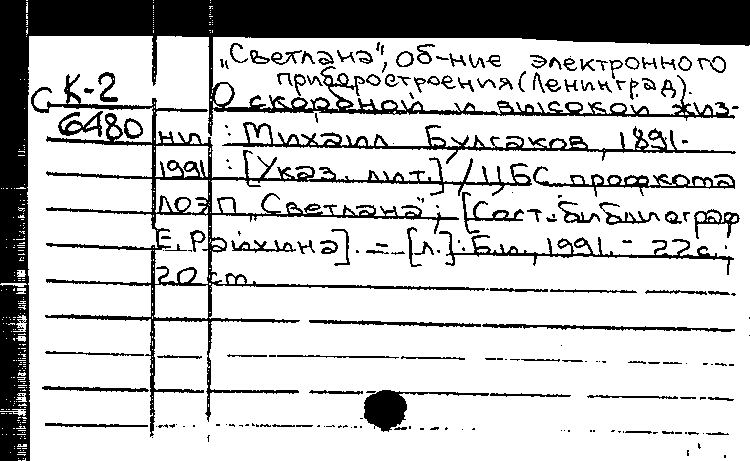 "Светлана", Об-ние электронного
приборостроения (Ленинград).
С К-2 О скорбной и высокой жиз-
6480 ни : Михаил Булгаков, 1891-
1991 : [Указ. лит.] / ЦБС профкома
ЛОЭП "Светлана"; [Сост. библиограф
Е. Райхина]. - [Л.] : Б.и., 1991. - 22 с.;
20 cm.